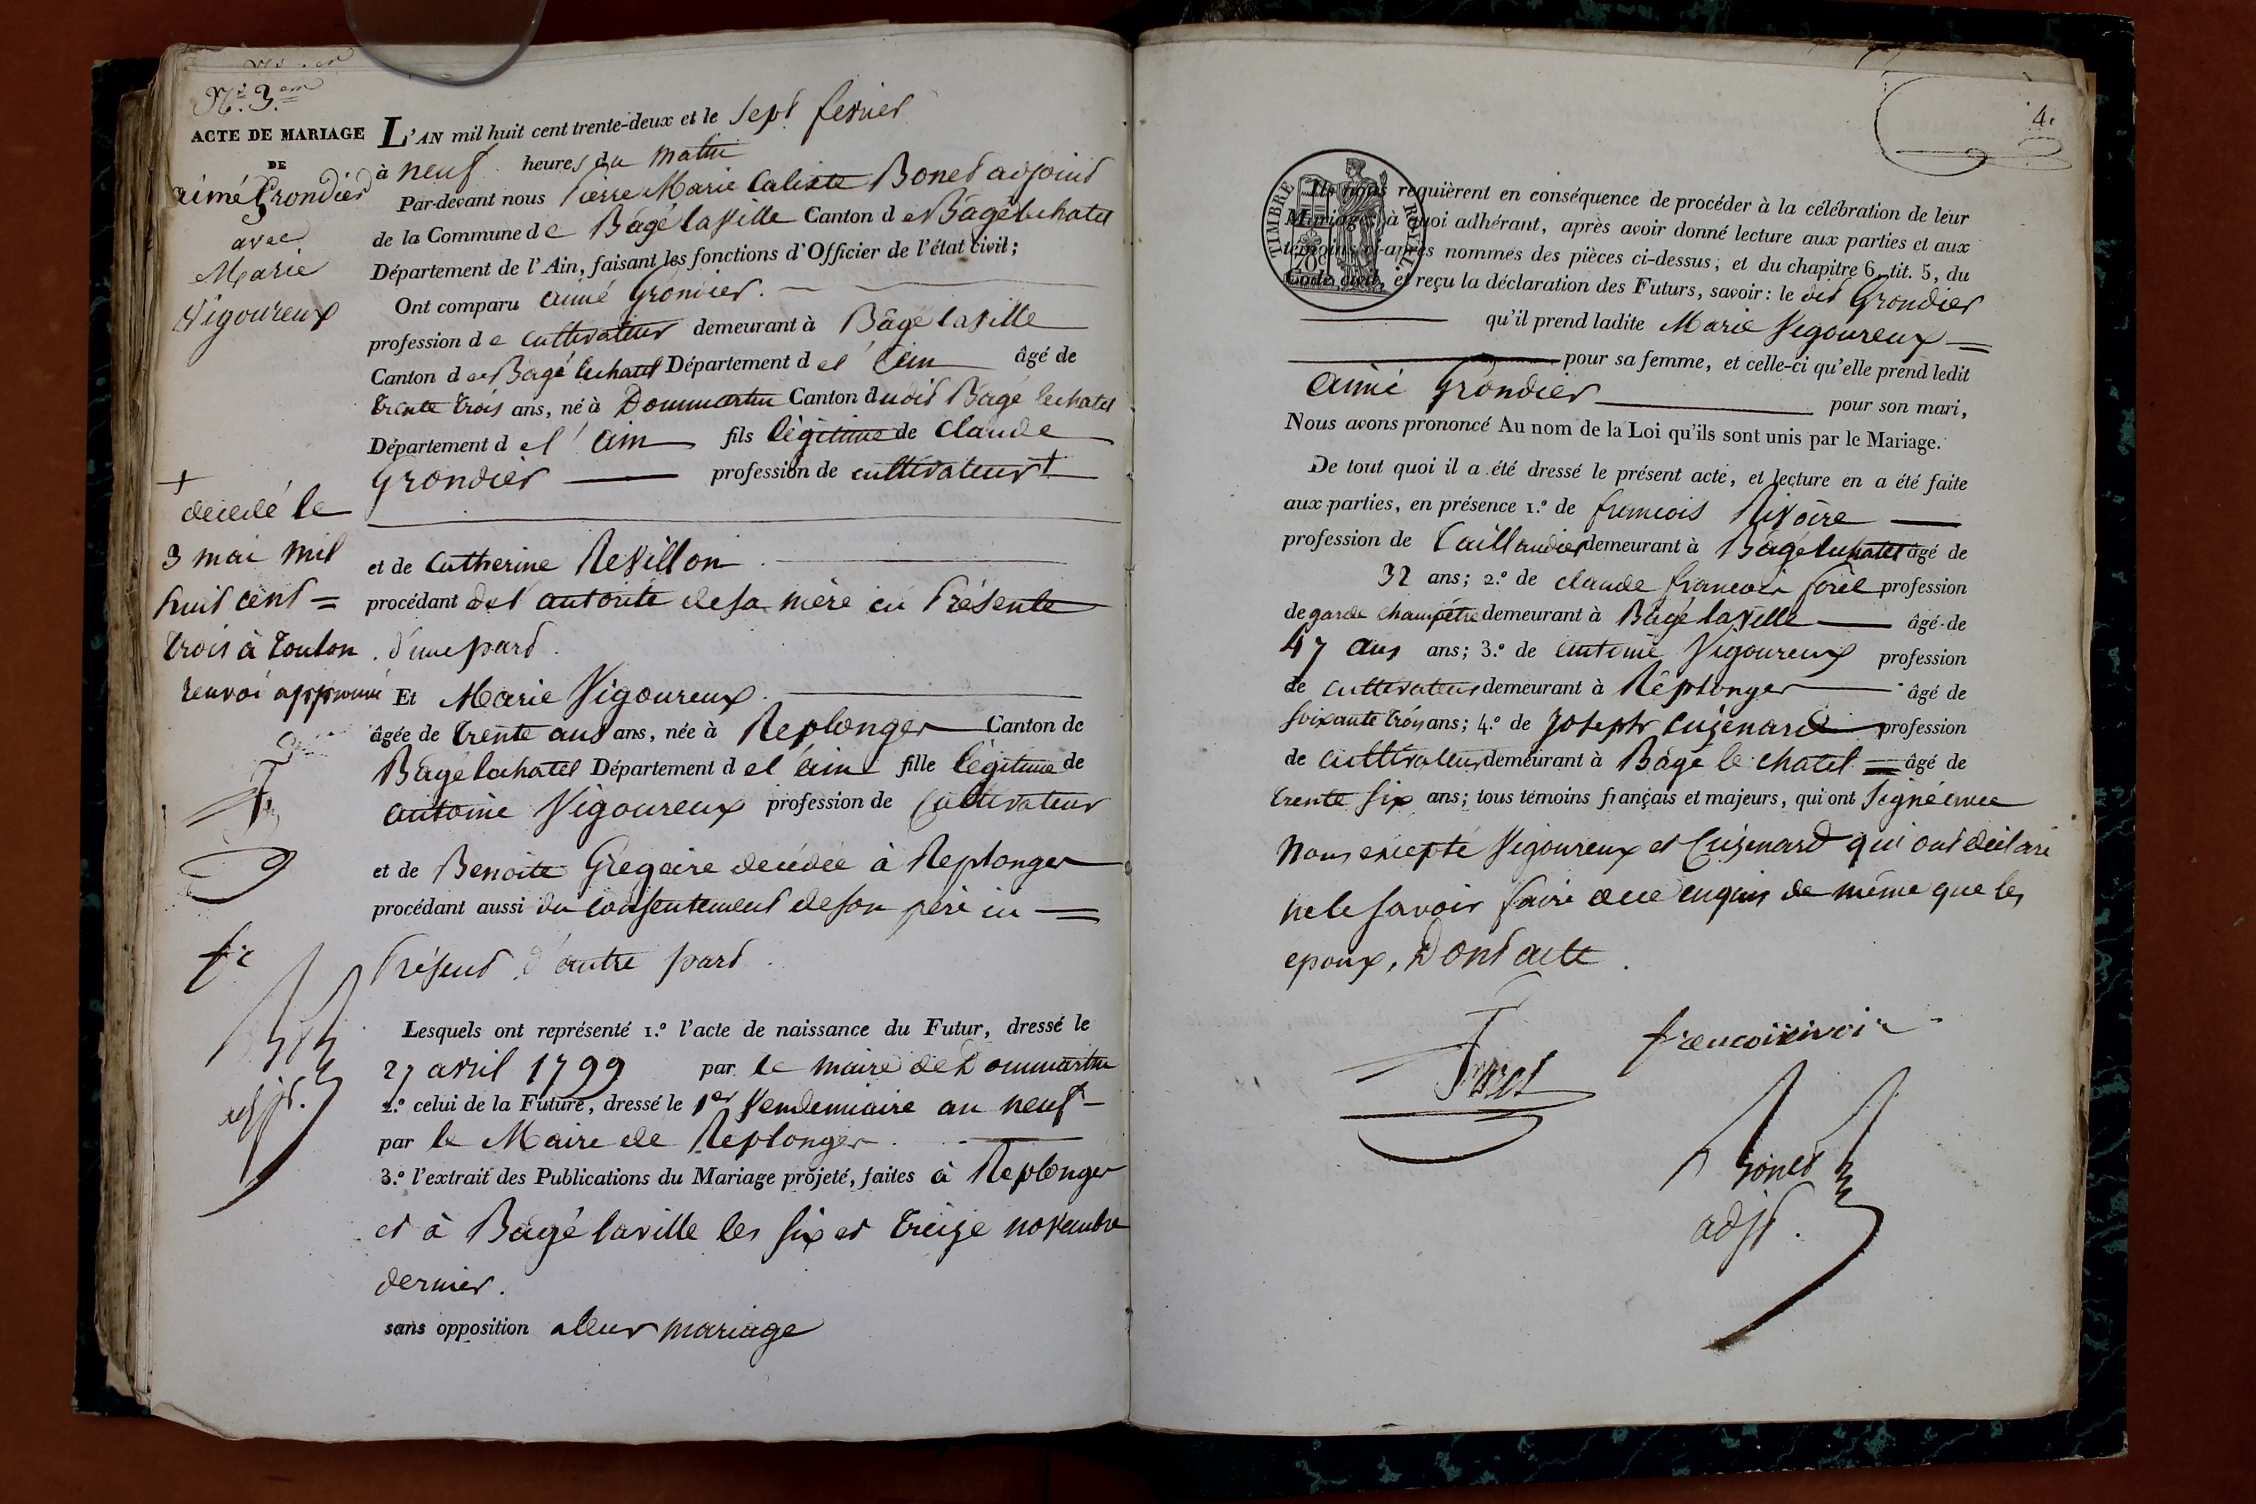 N.º 3.em
ACTE DE MARIAGE
DE
aimé Grondier
avec
Marie
Vigoureux
L'AN mil huit cent trente-deux et le sept fevrier
à neuf heures du matin
Par-devant nous Pierre Marie Calixte Bonet adjoint
de la Commune de Bâgé laville Canton de Bâgé lechatel
Département de l'Ain, faisant les fonctions d'Officier de l'état civil;
Ont comparu aimé Grondier.
profession de cultivateur demeurant à Bâgé laville
Canton de Bâgé lechatel Département del'ain âgé de
trente trois ans, né à Dommartin Canton dudit Bâgé lechatel
Département del'ain fils légitime de Claude
Grondier profession de cultivateur +
+
décedé le
3 mai mil
huit cent =
trois à toulon
renvoi approuvé
et de Catherine Revillon
procédant del'autorité desa mère ici Présente
d'une part.
Et Marie Vigoureux
âgée de trente ans ans, née à Replonger Canton de
Bâgé lechatel Département del'ain fille légitime de
antoine Vigoureux profession de Cultivateur
et de Benoite Grégoire decédée à Replonger
procédant aussi du consentement deson père ici
Présent d'autre part.
fr
adjt.
Lesquels ont représenté 1.º l'acte de naissance du Futur, dressé le
27 avril 1799 par le maire de Dommartin
2.º celui de la Future, dressé le 1er Vendemiaire an neuf
par le Maire de Replonger
3.º l'extrait des Publications du Mariage projeté, faites à Replonger
et à Bâgé laville les six et treize novembre
dernier.
sans opposition aleur mariage
4.
TIMBRE ROYAL
70c
Ils nous requièrent en conséquence de procéder à la célébration de leur
Mariage, à quoi adhérant, après avoir donné lecture aux parties et aux
témoins ci-après nommés des pièces ci-dessus, et du chapitre 6, tit. 5, du
Code civil, et reçu la déclaration des Futurs, savoir: le dit Grondier
qu'il prend ladite Marie Vigoureux
pour sa femme, et celle-ci qu'elle prend ledit
aimé Grondier pour son mari,
Nous avons prononcé Au nom de la Loi qu'ils sont unis par le Mariage.
De tout quoi il a été dressé le présent acte, et lecture en a été faite
aux parties, en présence 1.º de francois Rivoire
profession de Taillandier demeurant à Bâgé lechatel âgé de
32 ans; 2.º de claude francois forêt profession
de garde champêtre demeurant à Bâgé laville âgé de
47 ans ans; 3.º de antoine Vigoureux profession
de cultivateur demeurant à Replonger âgé de
soixante trois ans; 4.º de joseph Cuzenard profession
de cultivateur demeurant à Bâgé le chatel âgé de
trente six ans; tous témoins français et majeurs, qui ont signé avec
nous excepté Vigoureux et Cuzenard qui ont déclaré
ne le savoir faire dece enquis de même que les
epoux, Dont acte.
francoi rivoir
foret
Bonet
adjt.